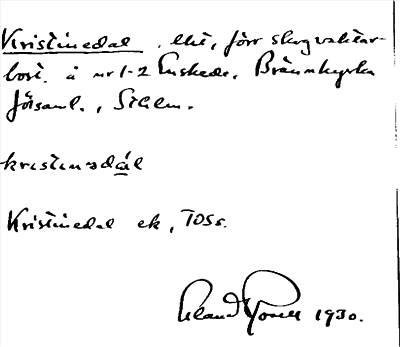 Kristinedal, lht, förr skogvaktar-
bost. å nr 1-2 Enskede, Brännkyrka
församl., Sthlm.
kristinədál
Kristinedal ek, TOSs.
Erland Rosell 1930.